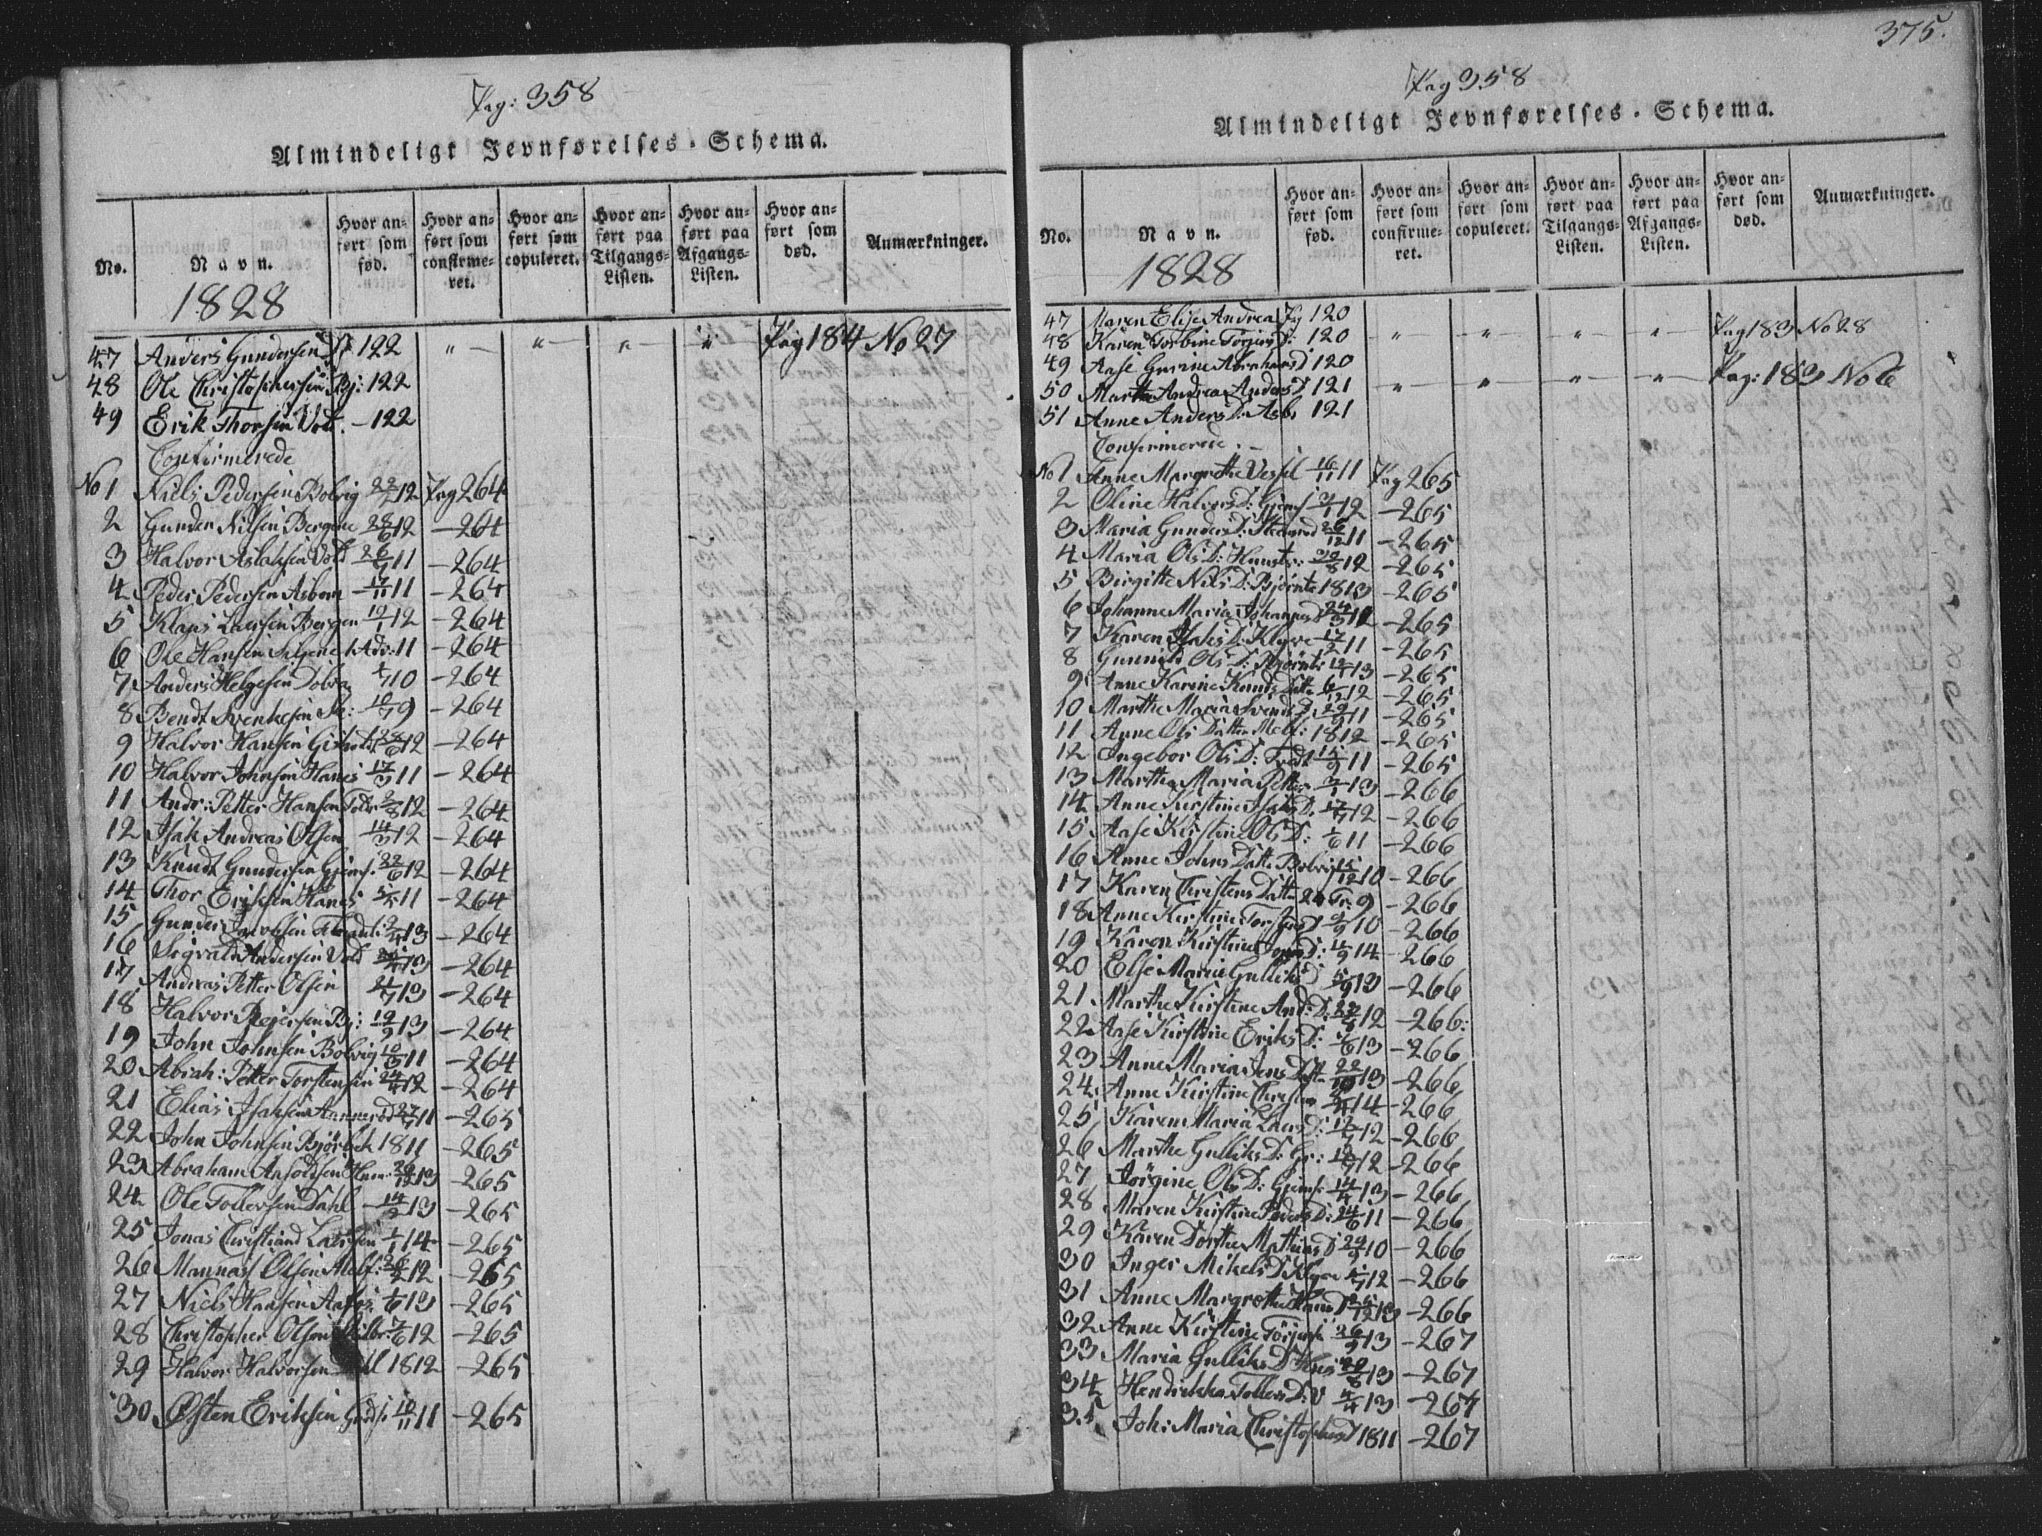 375.
Pag: 358
Almindeligt Jevnførelses-Schema.
No.
Navn.
Hvor anført som fød.
Hvor anført som confirmeret.
Hvor anført som copuleret.
Hvor anført paa Tilgangs-Listen.
Hvor anført paa Afgangs-Listen.
Hvor anført som død.
Anmærkninger.
1828
47 Anders Gundersen 122 " " " " Pag 184 No 27
48 Ole Christophersen Bj: 122
49 Erik Thorsen Vold. - 122
Confirmerede
No 1 Niels Pedersen Bolvig 12 Pag 264
2 Gunder Nilsen Bergene 12 - 264
3 Halvor Aslaksen Vold 11 - 264
4 Peder Pedersen Asbom 17/11 11 - 264
5 Klaus Larsen Bergen 12 - 264
6 Ole Hansen 1 Adv: 11 - 264
7 Anders Helgesen 10 - 264
8 Bendt 9 - 264
9 Halvor Hansen 12 - 264
10 Halvor Johnsen Hanes 11 - 264
11 Andr: Petter Hansen 12 - 264
12 Isak Andreas Olsen 14/3 12 - 264
13 Knudt Gundersen 22/6 12 - 264
14 Thor Eriksen Hanes 11 - 264
15 Gunder 13 - 264
16 Sigvald Andersen Vold 13 - 264
17 Andreas Petter Olsen 13 - 264
18 Halvor 13 - 264
19 John Johnsen Bolvig 11 - 264
20 Abrah: Petter Torstensen 12 - 264
21 Elias Isaksen 11 - 265
22 John Johnsen 1811 - 265
23 Abraham 13 - 265
24 Ole Tollefsen Dahl 14/2 13 - 265
25 Jonas Christiand Larsen 1/1 14 - 265
26 Mannas Olsen Melb: 12 - 265
27 Niels Hansen 13 - 265
28 Christopher Olsen 12 - 265
29 Halvor Halvorsen 1812 - 265
30 Østen Eriksen 11 - 265
Pag 358
Almindeligt Jevnførelses-Schema.
No.
Navn.
Hvor anført som fød.
Hvor anført som confirmeret.
Hvor anført som copuleret.
Hvor anført paa Tilgangs-Listen.
Hvor anført paa Afgangs-Listen.
Hvor anført som død.
Anmærkninger.
1828
47 Maren Elise Andrea 120
48 Karen Torbine Torjers D: 120 " " " " Pag 183 No 28
49 Aase Gurine Abrahams D 120
50 Marthe Andrea Anders D 121 " " " " Pag: 183 No 6
51 Anne Anders D: Asb: 121
Confirmerede. -
No 1 Anne Margrethe 16/11 11 Pag 265
2 Oline Halvors D: 12 - 265
3 Maria Gunders D: 26/12 11 - 265
4 Maria Ols D: 12 - 265
5 Birgitte Nils D: 1813 - 265
6 Johanne Maria Johannes D - 265
7 Karen Isaks D: Klyve 11 - 265
8 Gunnild Ols D: 13 - 265
9 Anne Karine Knuds Datter 12 - 265
10 Marthe Maria Svends D. 11 - 265
11 Anne Ols Datter Melb: 1812 - 265
12 Ingebor Ols D: 11 - 265
13 Marthe Maria Petter 13 - 266
14 Anne Kirstine Isaks D: 12 - 266
15 Aase Kirstine Ols D: 11 - 266
16 Anne Johns Datt: Bolvig 15/12 10 - 266
17 Karen Christens Datter 9 - 266
18 Anne Kirstine Torstens D 10 - 266
19 Karen Kirstine D: 14 - 266
20 Else Marie Gulliks D 13 - 266
21 Marthe Kirstine And: D: 12 - 266:
22 Aase Kirstine Eriks D: 13 - 266
23 Anne Maria Jens Datt 13 - 266
24 Anne Kirstine Christen 14 - 266
25 Karen Maria Lars D: 12 - 266
26 Marthe Gulliks D: 12 - 266
27 Jørgine Ols D: 13 - 266
28 Maren Kirstine Peders D: 24/6 11 - 266
29 Karen Dorthe Mathias D 10 - 266
30 Inger Mikels D Klyve 12 - 266
31 Anne Margrethe 13 - 266
32 Anne Kirstine 13 - 267
33 Maria Gulliks D 13 - 267
34 Hendrikka Tollefs D: V 13 - 267
35 Joh: Maria Christophers D 1811 - 267